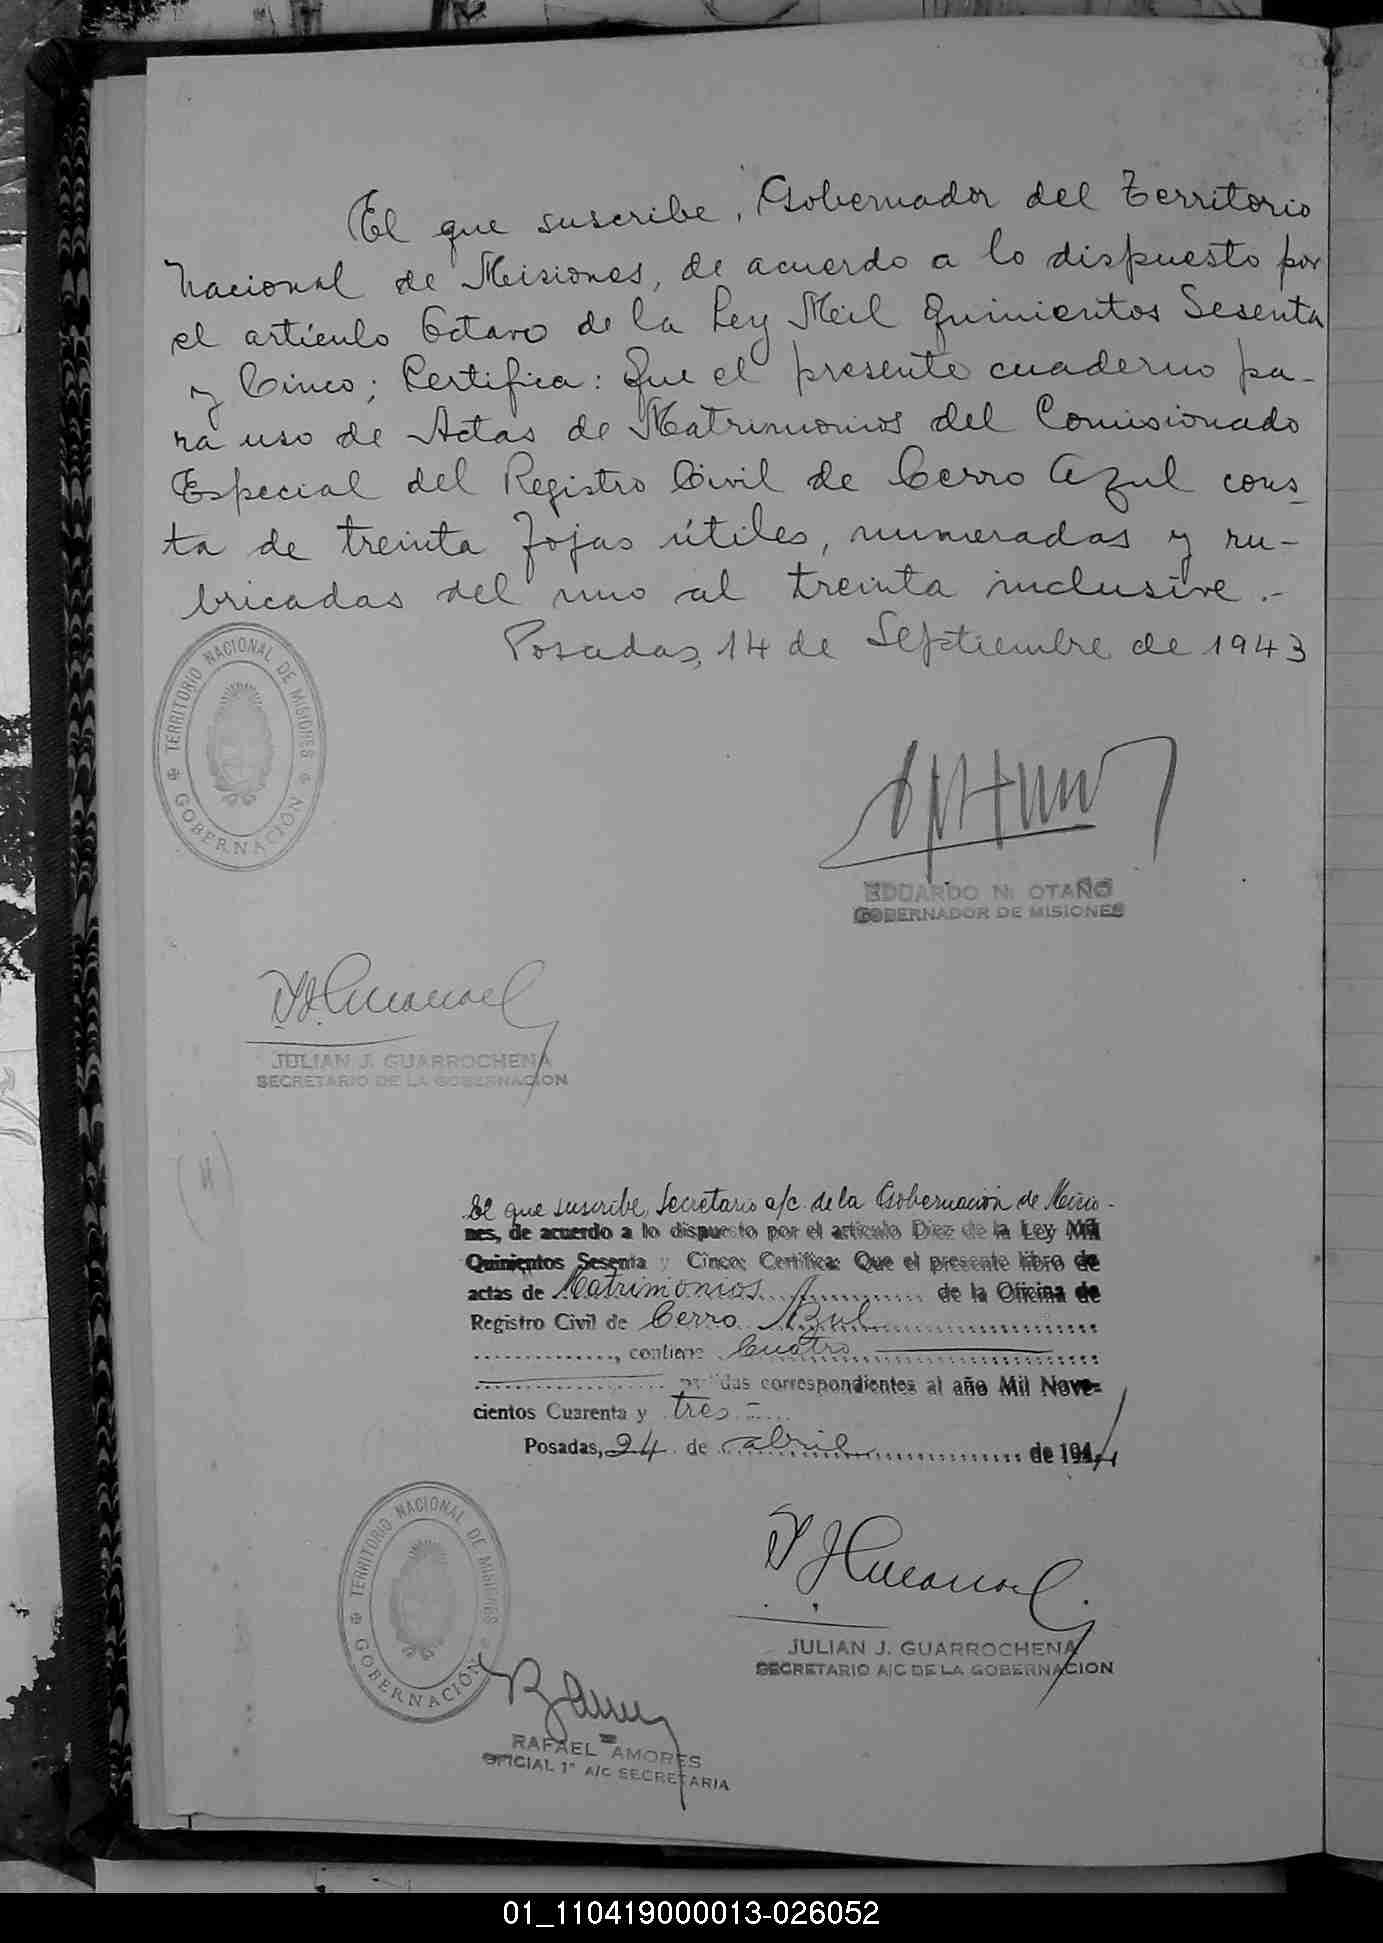 El que suscribe, Gobernador del Territorio
Nacional de Misiones, de acuerdo a lo dispuesto por
el artículo Octavo de la Ley Mil Quinientos Sesenta
y Cinco; Certifica: Que el presente cuaderno pa-
ra uso de Actas de Matrimonios del Comisionado
Especial del Registro Civil de Cerro Azul cons-
ta de treinta fojas útiles, numeradas y ru-
bricadas del uno al treinta inclusive.-
Posadas, 14 de Septiembre de 1943
TERRITORIO NACIONAL DE MISIONES
GOBERNACIÓN
EDUARDO N. OTAÑO
GOBERNADOR DE MISIONES
JULIAN J. GUARROCHENA
SECRETARIO DE LA GOBERNACION
El que suscribe, Secretario a/c. de la Gobernación de Misio-
nes, de acuerdo a lo dispuesto por el artículo Diez de la Ley Mil
Quinientos Sesenta y Cinco; Certifica: Que el presente libro de
actas de Matrimonios de la Oficina de
Registro Civil de Cerro Azul
, contiene Cuatro
das correspondientes al año Mil Nove-
cientos Cuarenta y tres.-
Posadas, 24 de abril de 1944
TERRITORIO NACIONAL DE MISIONES
GOBERNACIÓN
JULIAN J. GUARROCHENA
SECRETARIO A/C DE LA GOBERNACION
RAFAEL AMORES
OFICIAL 1° A/C SECRETARIA
01_110419000013-026052